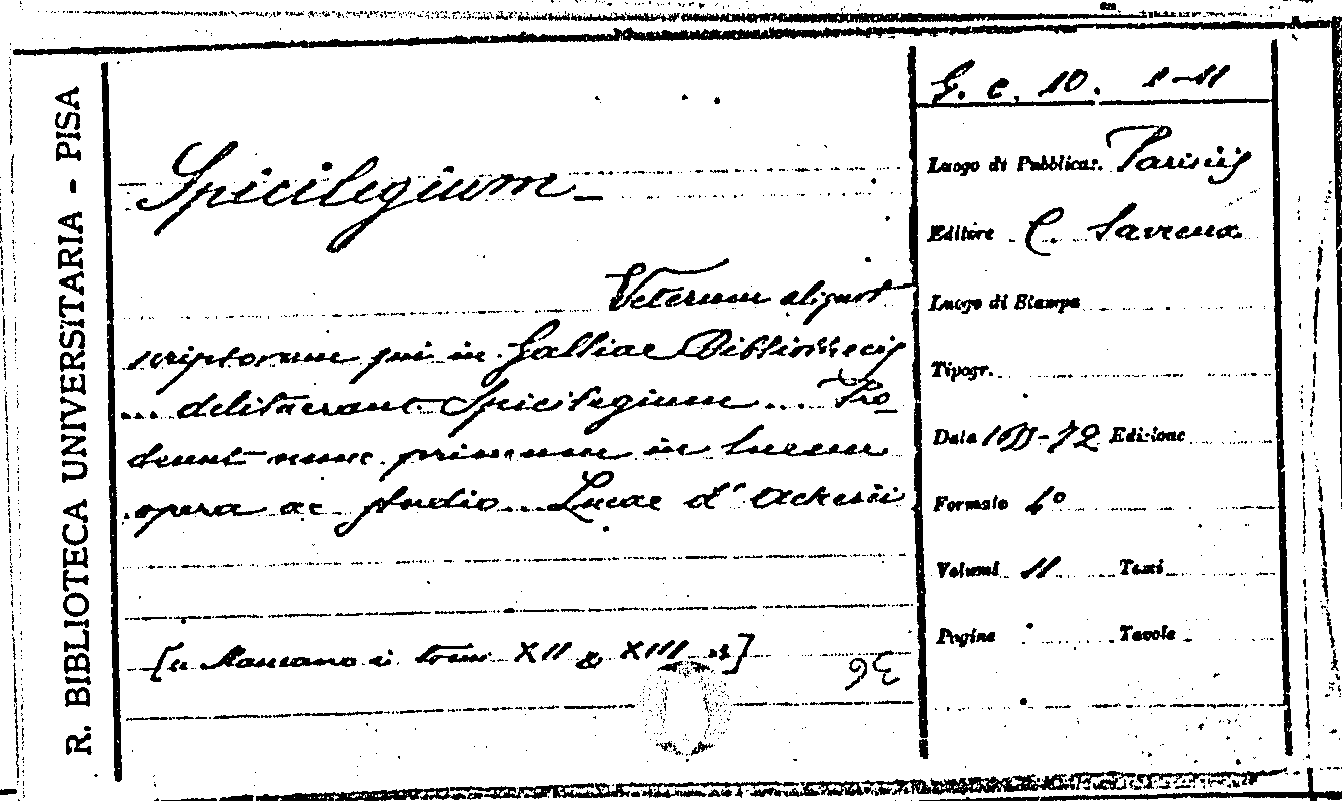 R. BIBLIOTECA UNIVERSITARIA - PISA
Spicilegium
Veterum aliquot
scriptorum qui in Galliae Bibliothecis
... delituerant Spicilegium ... Pro
deunt nunc primum in lucem
opera ac studio ... Lucae d'Acherii
[Mancano i tomi XII & XIII]
G. c. 10. 1-11
Luogo di Pubblicaz. Parisiis
Editore C. Savreux
Luogo di Stampa
Tipogr.
Data 1655-72 Edizione
Formato 4º
Volumi 11 Tomi
Pagine Tavole